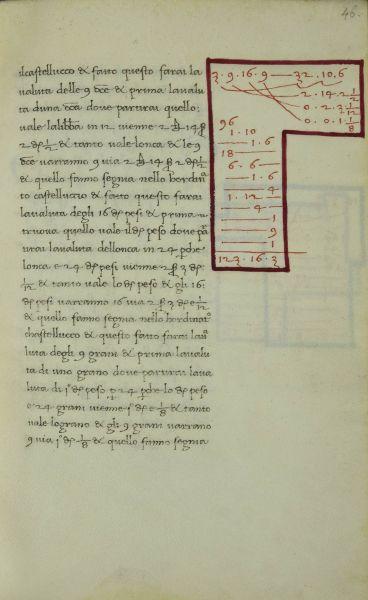 46.
ilcastellucco & fatto questo farai la
valuta delle 9 once & prima lavalu
ta duna oncia dove partirai quello:
vale lalibbra in 12 vienne 2 14
2 1/2 & tanto vale lonca & le 9
once varranno 9 via 2 14 2 1/2
& quello fanno segnia nello hordin
to castelluccio & fatto questo farai
lavaluta degli 16 peso & prima
truoua quello vale il peso dove pa
rtirai lavaluta dellonca in 24 perche
lonca e 24 pesi vienne 2 3
1/12 & tanto vale lo peso & gli 16
pesi varranno 16 via 2 3 e 1/12
& quello fanno segnia nello hordinato
chastellucco & questo fatto farai la
luta degli 9 grani & prima lavalu
ta di uno grano dove partirai lava
luta di peso 24 perche lo peso
e 24 grani vienne 1 e 1/8 & tanto
vale lograno & gli 9 grani varrano
9 via 1 1/8 & quello fanno segnia
3 . 9 . 16 . 9 — 32 . 10 . 6
2 . 14 . 2 1/2
0 . 2 . 3 1/12
0 . 0 . 1 1/8
96
1 . 10
18 —
6 . 6 —
— 1 . 6
— 4
1 . 12 —
— 4
— 1
— 9
— 1
123 . 16 . 3